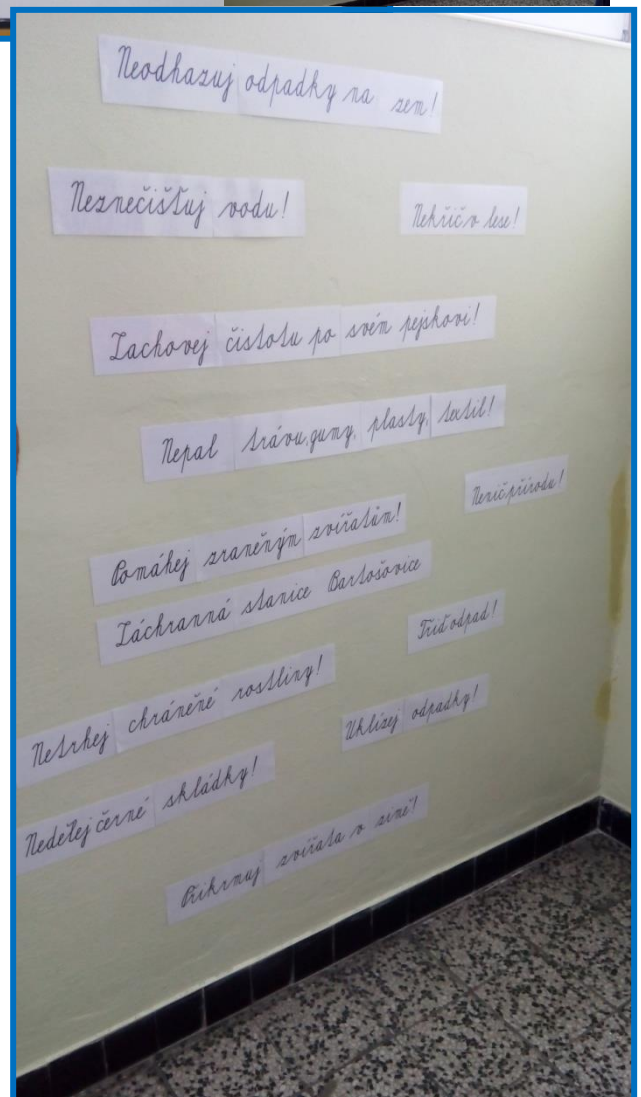 Neodhazuj odpadky na zem!
Neznečišťuj vodu!
Nekřič v lese!
Zachovej čistotu po svém pejskovi!
Nepal trávu, gumy, plasty, textil!
Neničpřírodu!
Pomáhej zraněným zvířatům!
Záchranná stanice Bartošovice
Třiď odpad!
Netrhej chráněné rostliny!
Uklízej odpadky!
Nedělej černé skládky!
Přikrmuj zvířata v zimě!